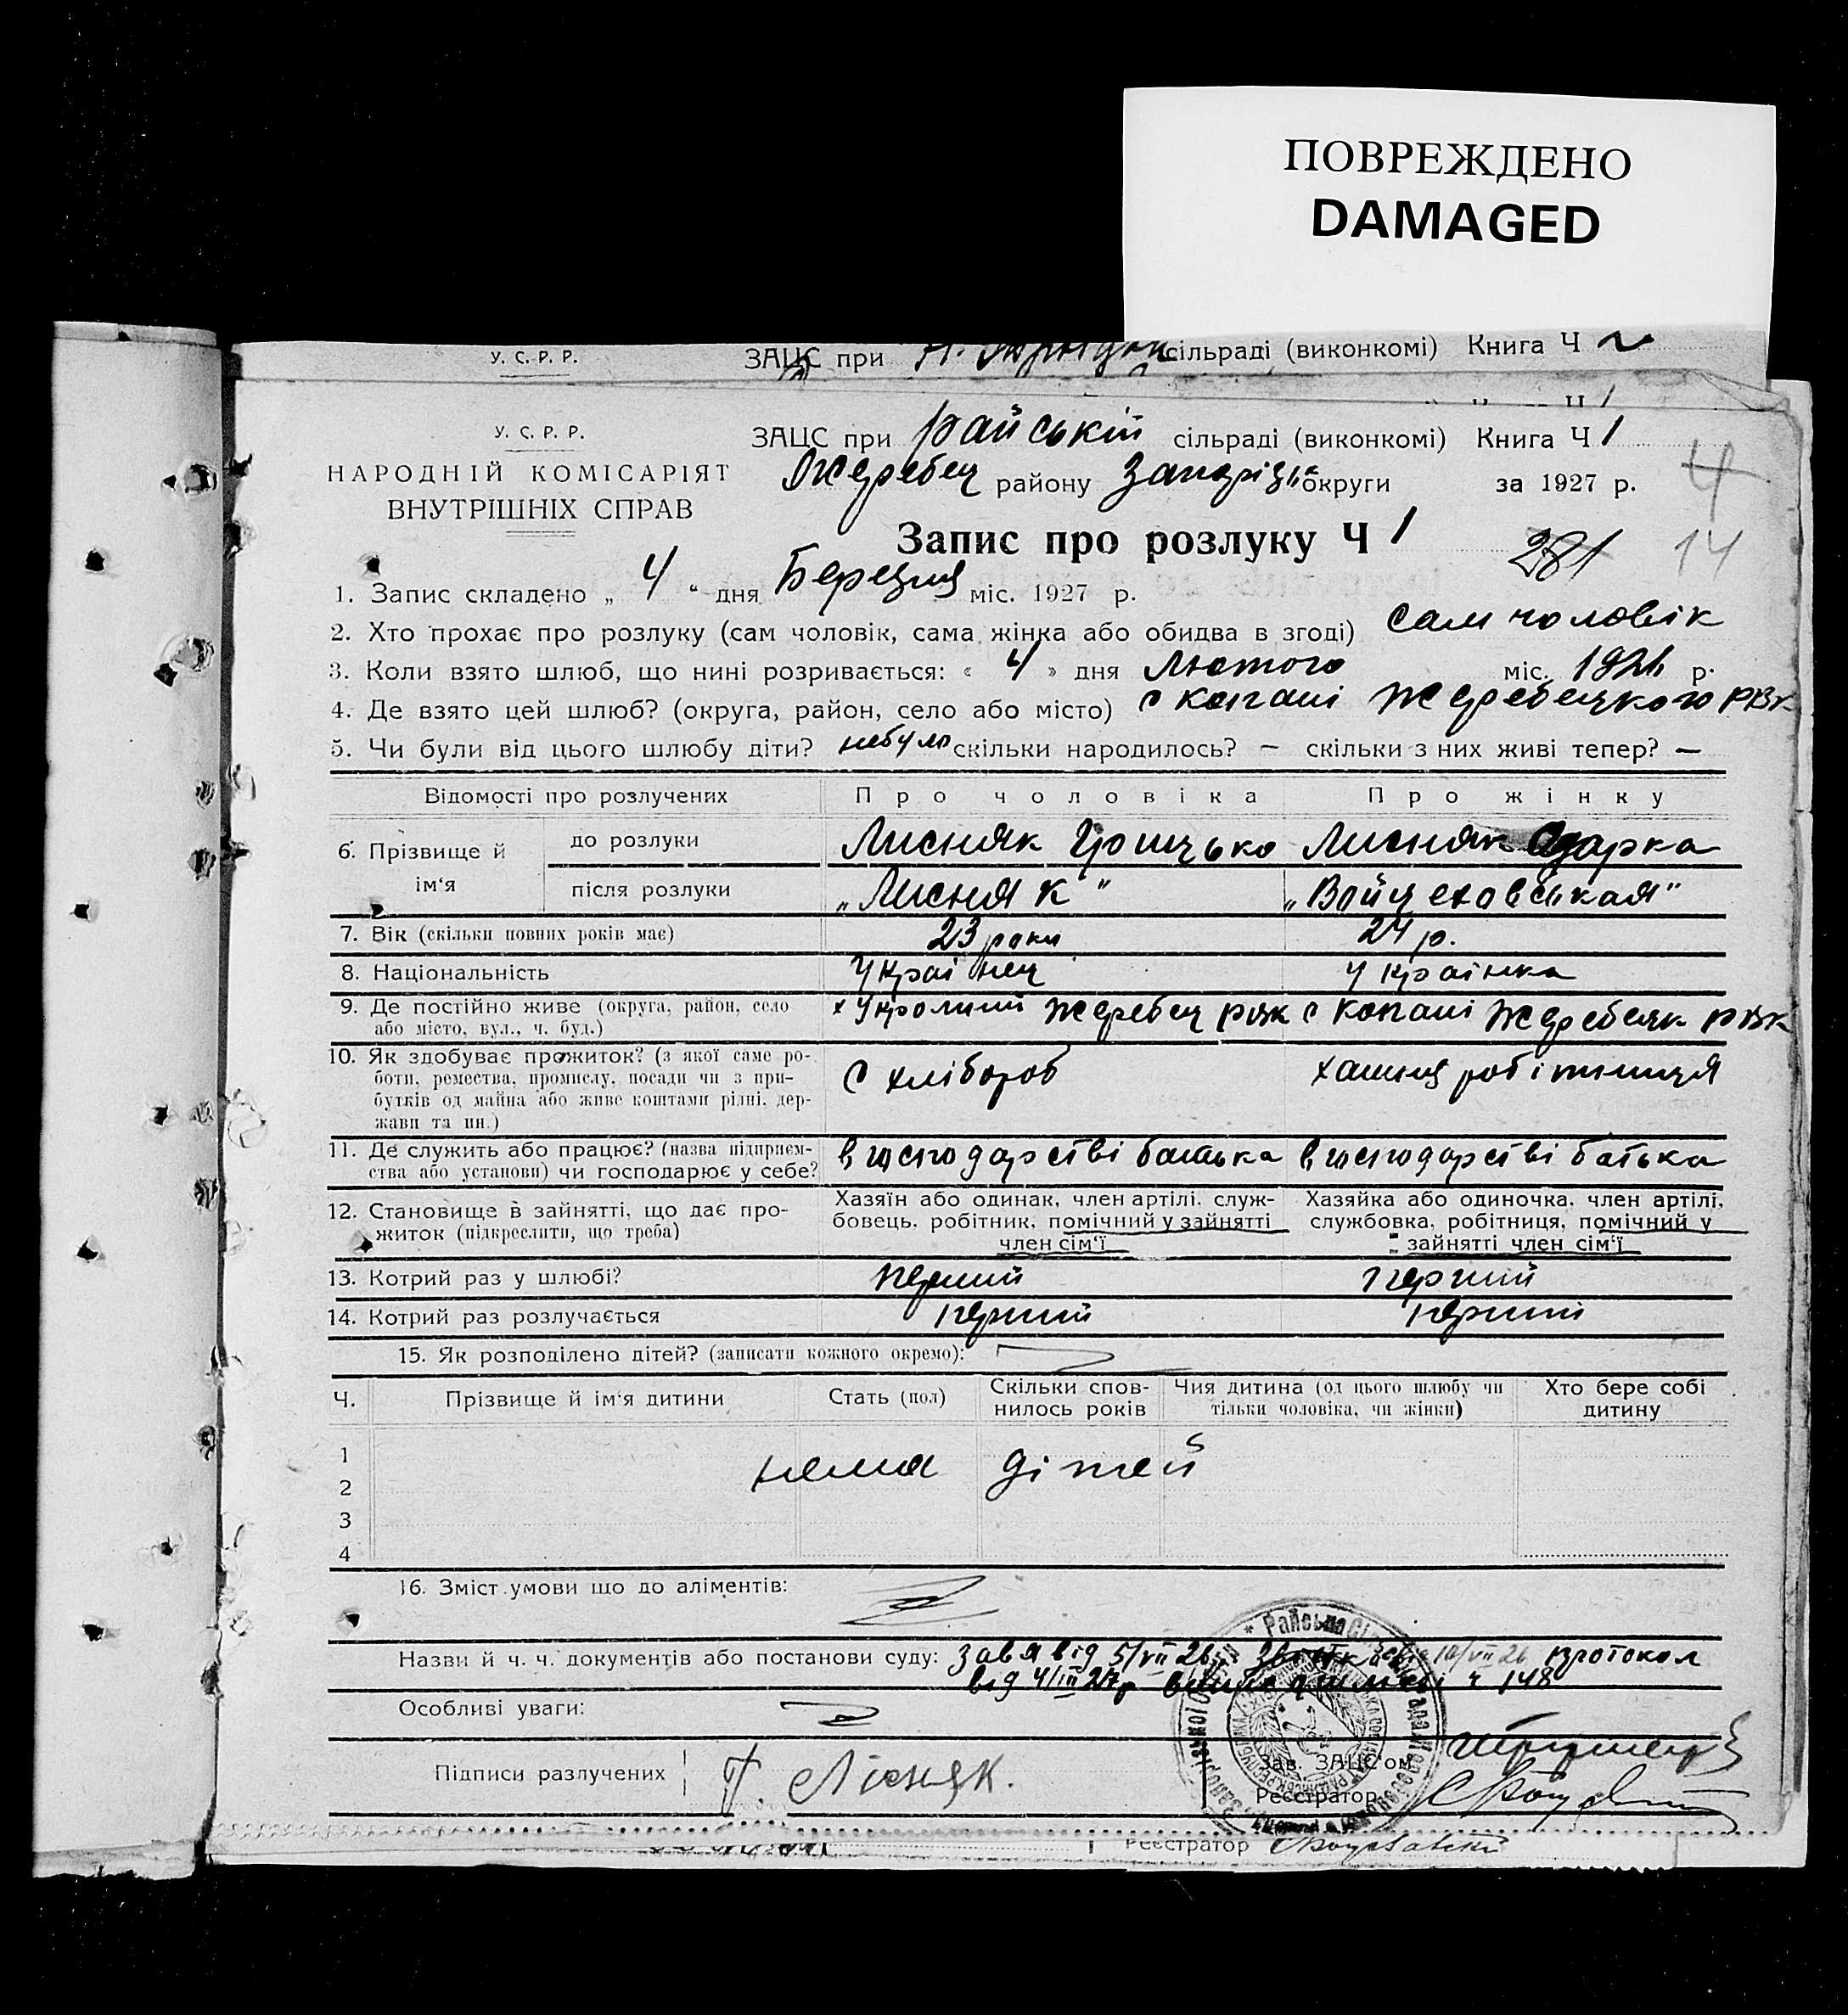 ПОВРЕЖДЕНО
DAMAGED
У. С. Р. Р. ЗАЦС при сільраді (виконкомі) Книга Ч
У. С. Р. Р. ЗАЦС при Райській сільраді (виконкомі) Книга Ч 1
НАРОДНІЙ КОМІСАРІЯТ Жеребец району Запоріз'к округи за 1927 р. 4
ВНУТРІШНІХ СПРАВ
Запис про розлуку Ч 1 281 14
1. Запис складено „ 4 “ дня Березня міс. 1927 р.
2. Хто прохає про розлуку (сам чоловік, сама жінка або обидва в згоді) сам чоловік
3. Коли взято шлюб, що нині розривається: « 4 » дня Лютого міс. р.
4. Де взято цей шлюб? (округа, район, село або місто) с Копані Жеребецкого РВК
5. Чи були від цього шлюбу діти? небуло скільки народилось? — скільки з них живі тепер? —
Відомості про розлучених Про чоловіка Про жінку
6. Прізвище й ім'я до розлуки Лисняк Грицько Лисняк Одарка
після розлуки „Лисняк" „Войцеховськая"
7. Вік (скільки повних років має) 23 роки 24 р.
8. Національність Українец Українка
9. Де постійно живе (округа, район, село Жеребец рвк с Копані Жеребецк рвк
або місто, вул., ч. буд.)
10. Як здобуває прожиток? (з якої саме ро-
боти, ремества, промислу, посади чи з при- с хлібороб хатня робітниця
бутків од майна або живе коштами рідні, дер-
жави та ин.)
11. Де служить або працює? (назва підприєм- в господарстві батька в господарстві батька
ства або установи) чи господарює у себе?
12. Становище в зайнятті, що дає про- Хазяїн або одинак, член артілі, служ- Хазяйка або одиночка, член артілі,
житок (підкреслити, що треба) бовець, робітник, помічний у зайнятті службовка, робітниця, помічний у
член сім'ї зайнятті член сім'ї
13. Котрий раз у шлюбі? перший перший
14. Котрий раз розлучається перший перший
15. Як розподілено дітей? (записати кожного окремо):
Ч. Прізвище й ім'я дитини Стать (пол) Скільки спов- Чия дитина (од цього шлюбу чи Хто бере собі
нилось років тільки чоловіка, чи жінки) дитину
1
нема дітей
2
3
4
16. Зміст умови що до аліментів:
Назви й ч. ч. документів або постанови суду: завя від 5/VII 26 10/VII 26 протокол
від 4/III 27р ч 148
Особливі уваги:
Підписи разлучених Г. Лісняк. Зав. ЗАЦС'ом
Реєстратор
Реєстратор